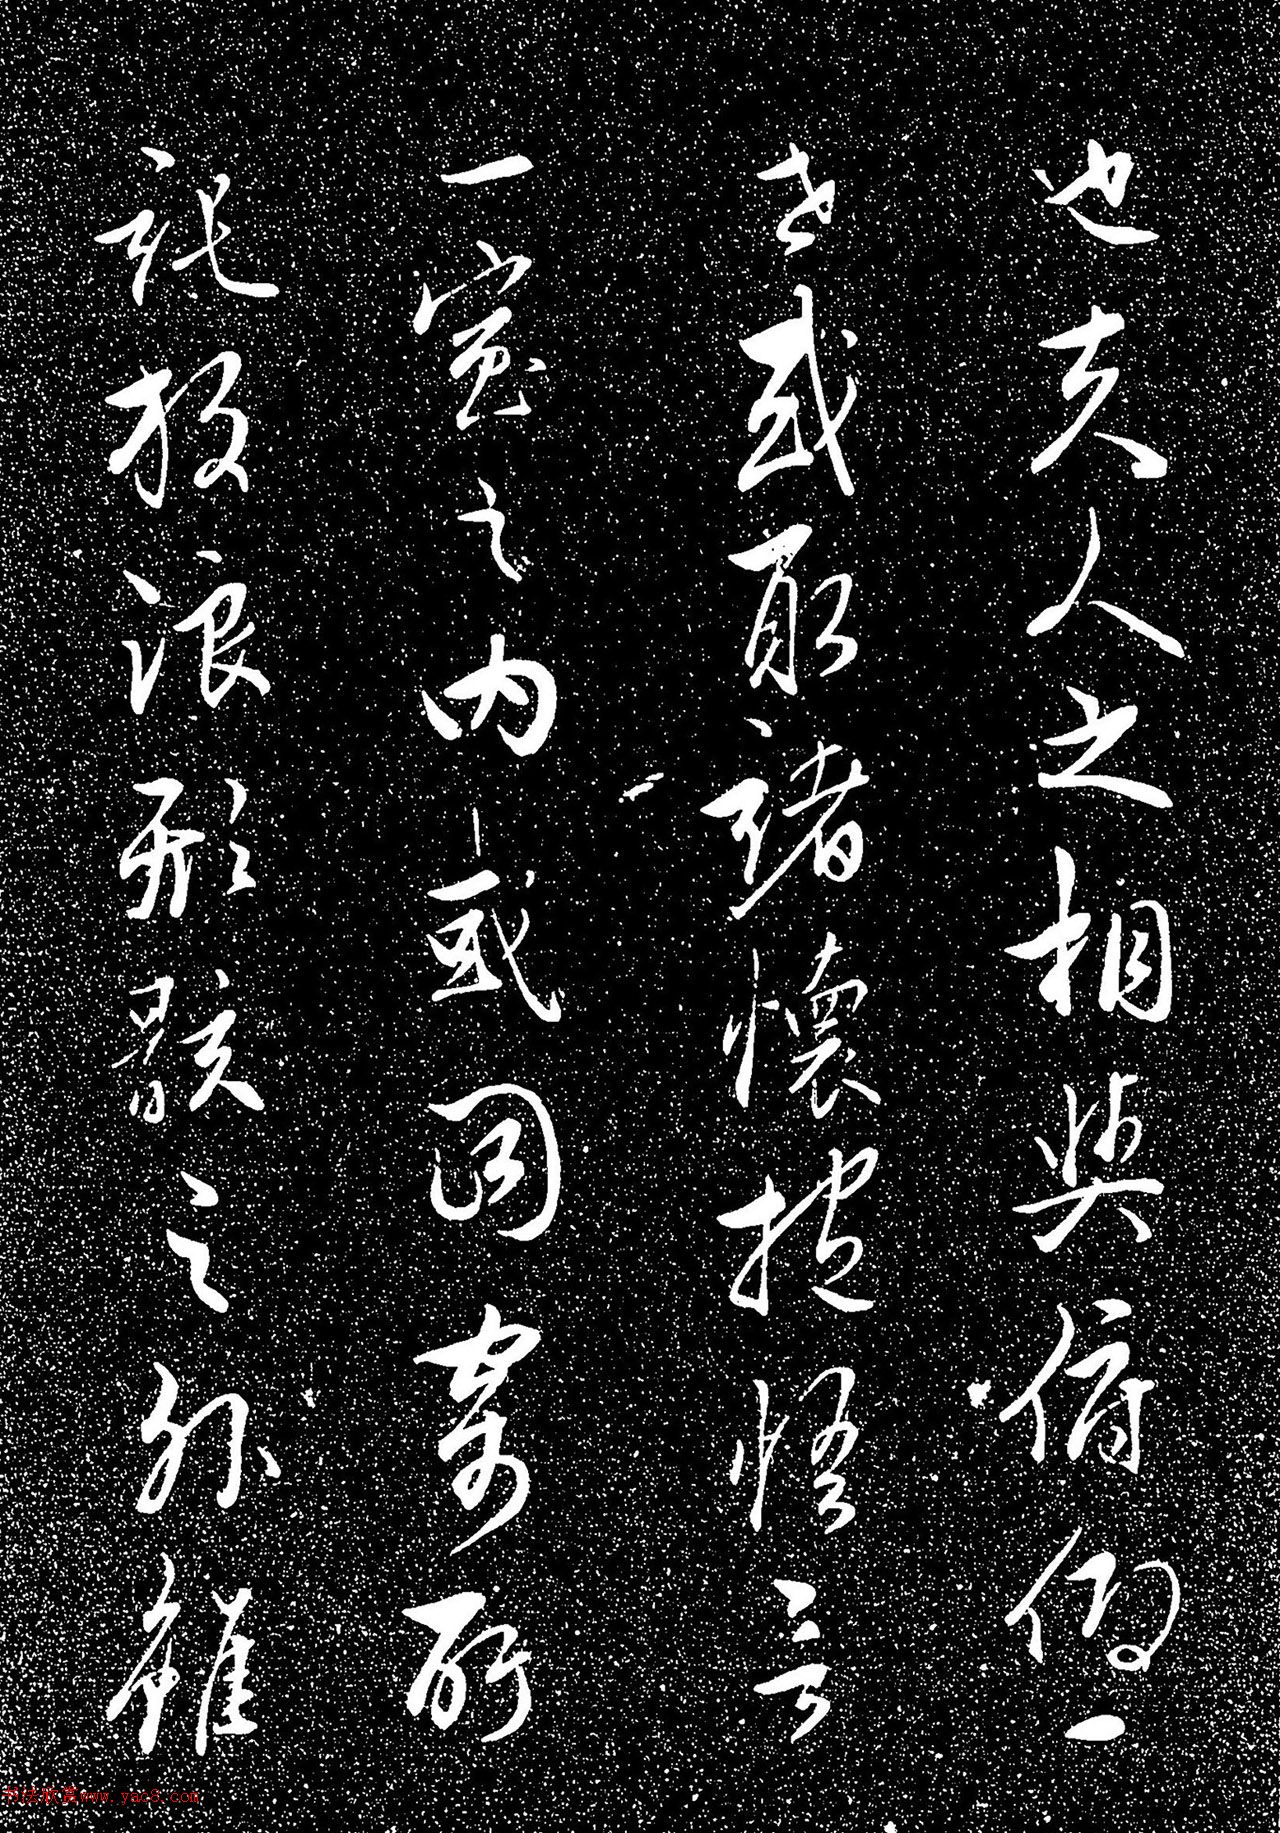 也夫人之相與俯仰一
世或取諸懷抱悟言
一室之内或因寄所
託放浪形骸之外雖
书法欣赏www.yac8.com